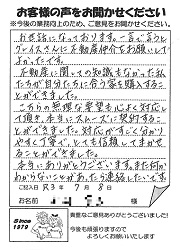 お客様の声をお聞かせください
※今後の業務向上のため、ご意見をお聞かせください
お世話になっております。一言で言うと
グレイスさんに不動産仲介をお願いして
よかったです。
不動産に関しての知識もなかった私
たちが自分たちに合う家を購入するこ
とができました。
こちらの無理な要望も心よく対応し
て頂き、本当にスムーズに契約するこ
とができました。対応がすごく分かり
やすく丁寧で、とても信頼してまかせ
ることができました。
本当にありがとうございます。また何か
わからないことがあったら連絡したいです。
ご記入日 R3年7月8日
お名前 様
Since
1979
貴重なご意見ありがとうございました!
今後も頑張りますので
よろしくお願いいたします